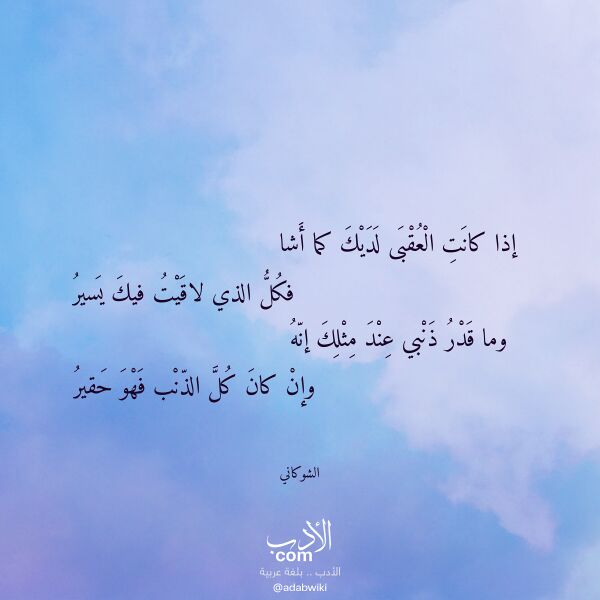 إذا كانَتِ الْعُقْبَى لَدَيْكَ كما أَشا
فكُلُّ الذي لاقَيْتُ فيكَ يَسيرُ
وما قَدْرُ ذَنْبي عِنْدَ مِثْلِكَ إنّهُ
وإنْ كانَ كُلَّ الذّنْب فَهْوَ حَقيرُ
الشوكاني
الأدب
com
الأدب .. بلغة عربية
@adabwiki